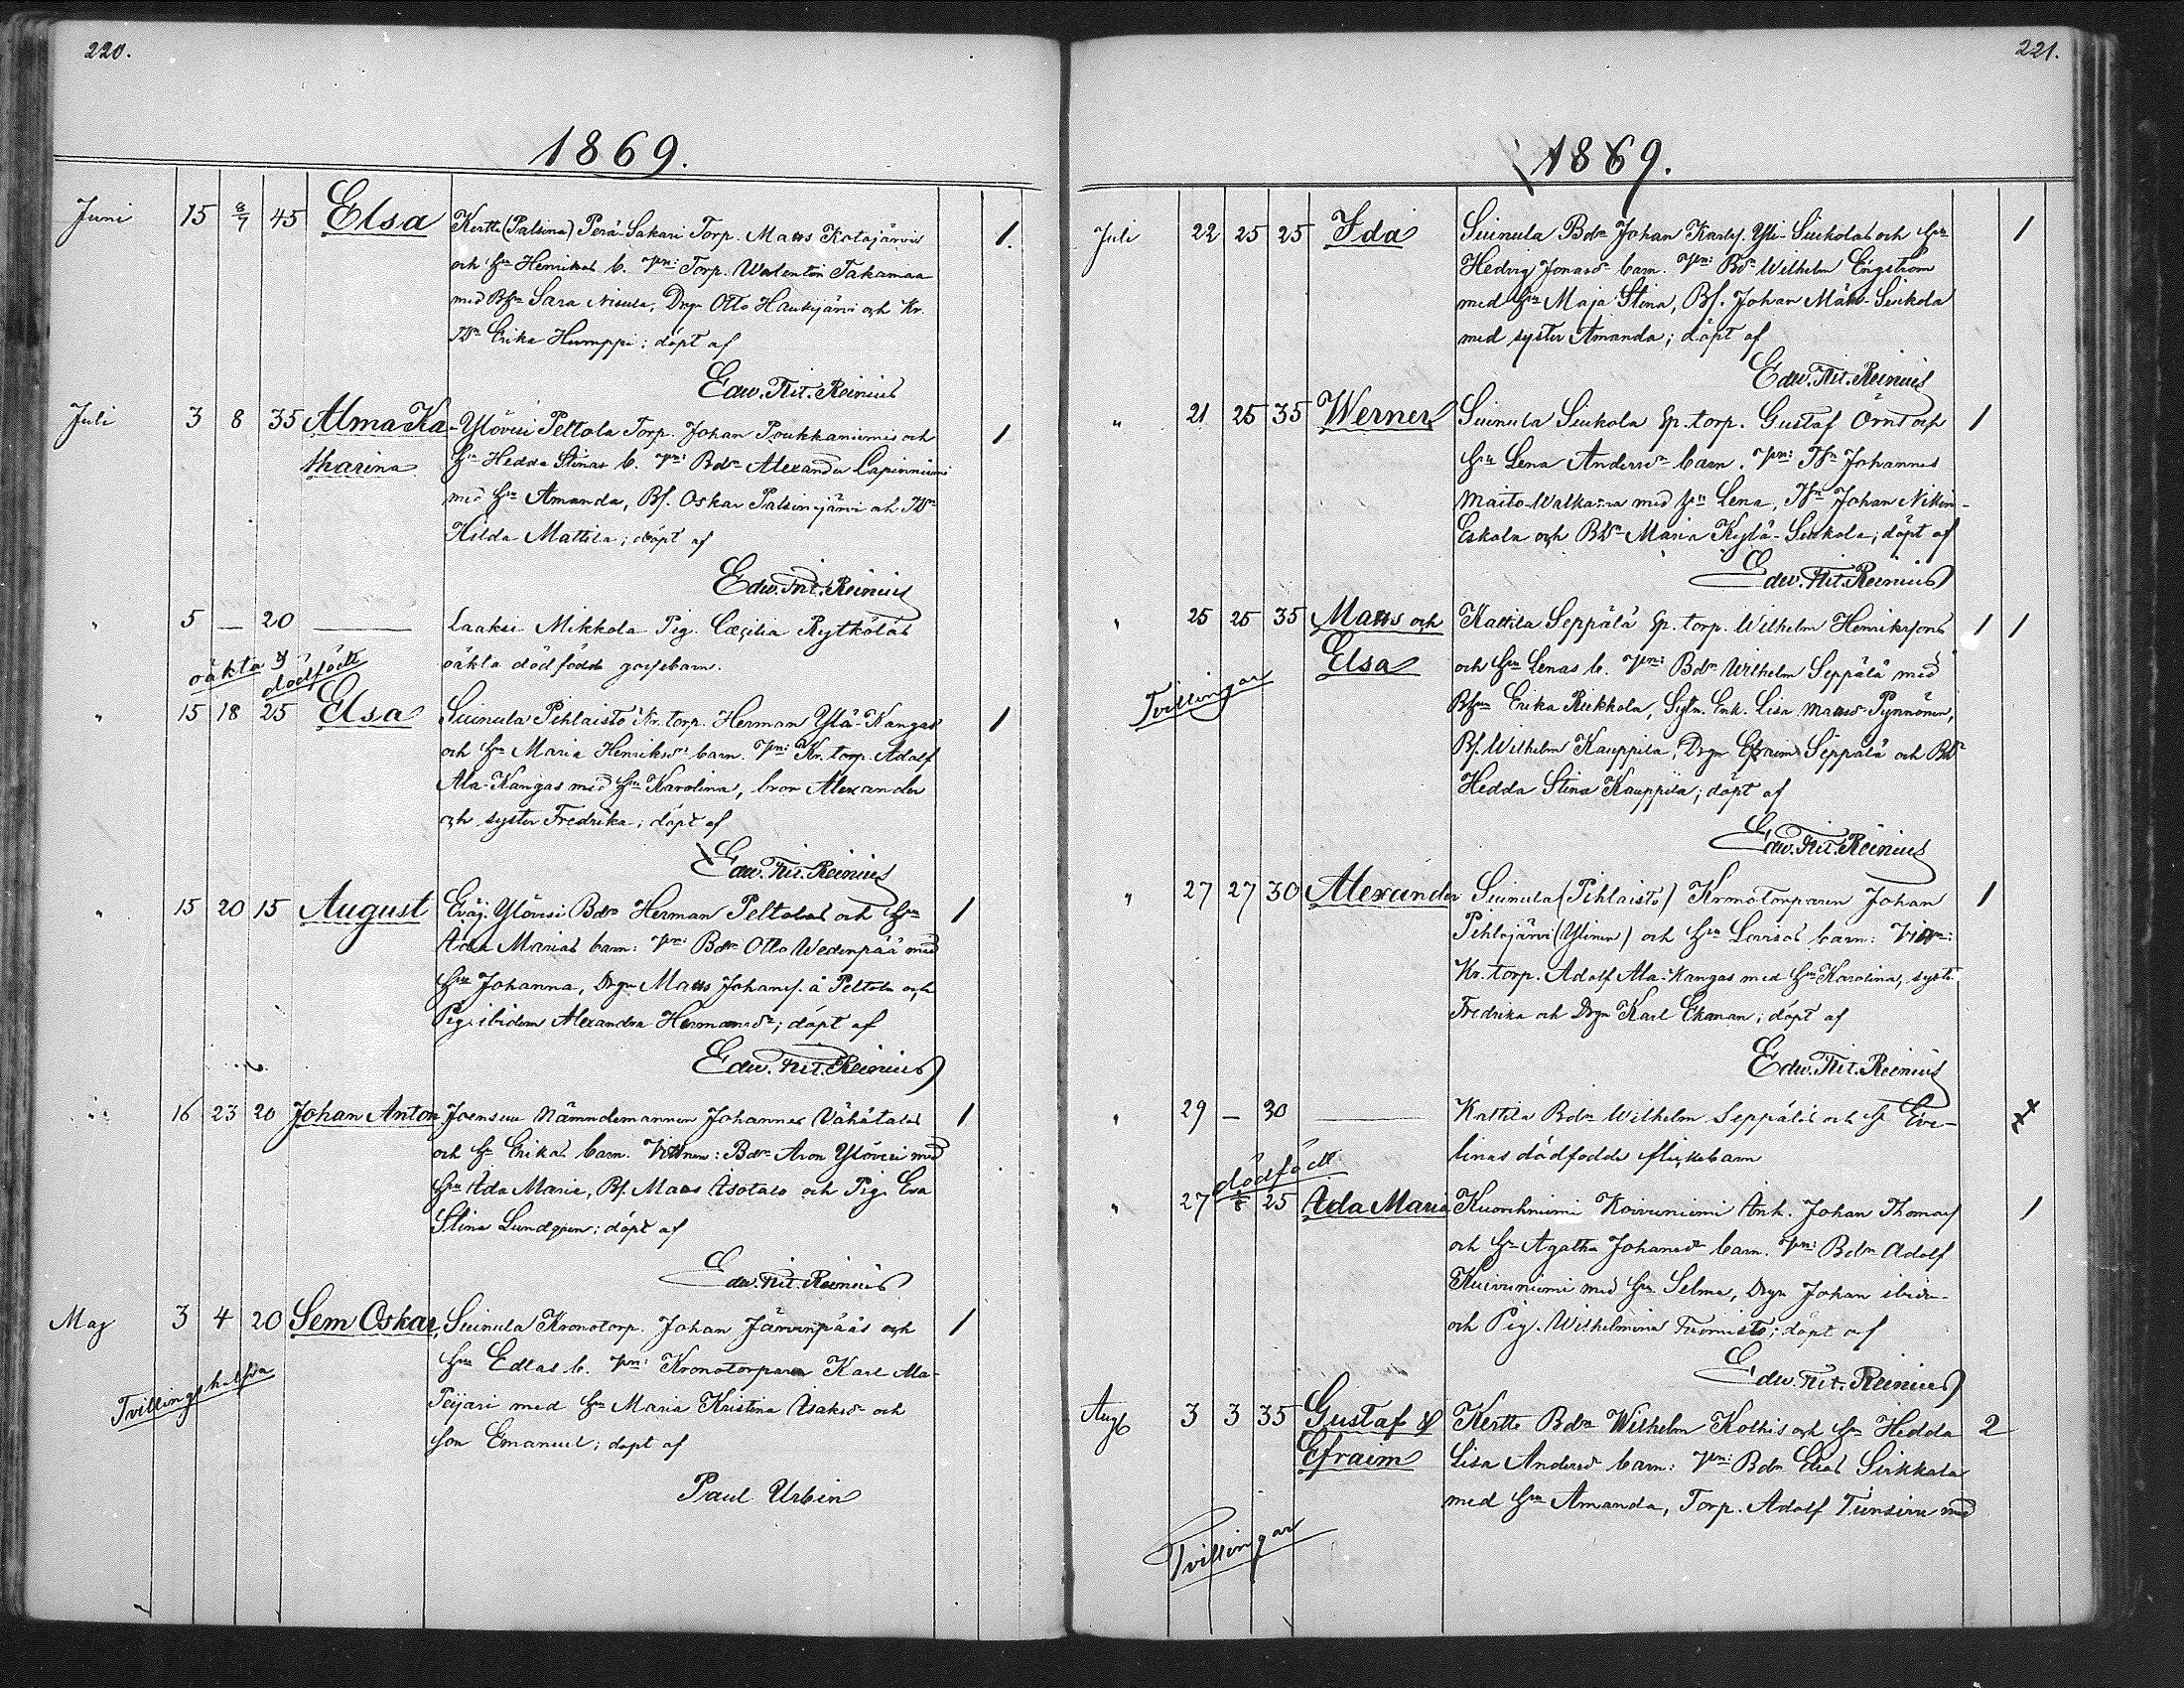 220.
1869.
Juni 15 8/7 45 Elsa Kertte (Palsina) Perä-Sakari Torp. Matts Kotajärvis 1.
och Hu Henrikas b. Vn: Torp. Walentin Takamaa
med Bhu Sara Nisula, Drgn Otto Haukijärvi och Kr.
TDr Erika Humppi; döpt af
Edw. Fit. Reinius
Juli 3 8 35 Alma Ka- Ylövesi Peltola Torp. Johan Poukkaniemis och 1
tharina Hu Hedda Stinas b. Vn: Bdn Alexander Lapinniemi
med Hu Amanda, Bs. Oskar Palsinajärvi och TDr
Hilda Mattila; döpt af
Edw. Fit. Reinius
" 5 — 20 — Laaksi Mikkola Pig. Cæcilia Rytkölas
oäkta & dödfödt oäkta dödfödda gossebarn.
" 15 18 25 Elsa Suinula Pihlaisto Kr. torp. Herman Ylä-Kangas 1
och Hu Maria Henriksdrs barn. Vn: Kr. torp. Adolf
Ala-Kangas med Hu Karolina, bror Alexander
och syster Fredrika; döpt af
Edw. Fit. Reinius
" 15 20 15 August Eväj. Ylövesi Bdn Herman Peltolas och Hu 1
Ada Marias barn: Vn: Bdn Otto Wedenpää med
Hu Johanna, Drgn Matts Johans. å Peltola och
Pig. ibidem Alexandra Hermansdr; döpt af
Edw. Fit. Reinius
" 16 23 20 Johan Anton Joensuu Nämndemannen Johannes Vähätalos 1
och Hu Erikas barn. Vittnen: Bdn Aron Ylövesi med
Hu Ada Maria, Bs. Matts Isotalo och Pig. Eva
Stina Lundgren; döpt af
Edw. Fit. Reinius
Maj 3 4 20 Sem Oskar, Suinula Kronotorp. Johan Järvenpääs och 1
Hu Eddas b. Vn: Kronotorparen Karl Ala-
Tvillingshalfva Peijari med Hu Maria Kristina Isaksdr och
son Emanuel; döpt af
Paul Urbin
221.
1869.
Juli 22 25 25 Ida Suinula Bdn Johan Karls. Yli-Siukolas och Hu 1
Hedvig Jonasdr barn. Vn: Bdn Wilhelm Engström
med Hu Maja Stina, Bs. Johan Mäki-Siukola
med syster Amanda; döpt af
Edw. Fit. Reinius
" 21 25 35 Werner Suinula Siukola Sp. torp. Gustaf Örns och 1
Hu Lena Andersdr barn. Vn: Th Johannes
Maito-Walkama med Hu Lena, Th Johan Nikkin-
Eskola och BDr Maria Kylä-Siukola; döpt af
Edw. Fit. Reinius
" 25 25 35 Matts och Kattila Seppälä Sp. torp. Wilhelm Henrikssons 1 1
Elsa och Hu Lenas b. Vn: Bdn Wilhelm Seppälä med
Tvillingar Bhu Erika Riekkola, Sytn. Enk. Lisa Mattsdr Pynnönen,
Bs. Wilhelm Kauppila, Drgn Efraim Seppälä och BDr
Hedda Stina Kauppila; döpt af
Edw. Fit. Reinius
" 27 27 30 Alexander Suinula (Pihlaisto) Kronotorparen Johan 1
Pihlajärvi (Ylinen) och Hu Lovisas barn: Vittn:
Kr. torp. Adolf Ala-Kangas med Hu Karolina, syst.
Fredrika och Drgn Karl Ekman; döpt af
Edw. Fit. Reinius
" 29 — 30 — Kattila Bdn Wilhelm Seppälä's och H Eve-
dödfödt linas dödfödda flickebarn
" 27 1/8 25 Ada Maria Kuorehniemi Koivuniemi Inh. Johan Thomas 1
och Hu Agatha Johansdr barn. Vn: Bdn Adolf
Koivuniemi med Hu Selma, Drgn Johan ibidem
och Pig. Wilhelmina Tuomisto; döpt af
Edw. Fit. Reinius
Aug. 3 3 35 Gustaf & Kertte Bdn Wilhelm Kolhis och Hu Hedda 2
Efraim Lisa Andersdr barn: Vn: Bdn Elias Sirkkala
med Hu Amanda, Torp. Adolf Tiensuu med
Tvillingar